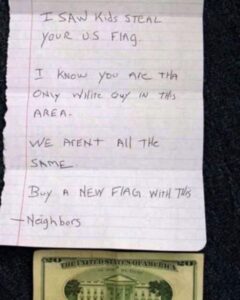 I SAW Kids STEAL
YOUR U.S FLAG.
I KNOW YOU ARE THA
ONLY WHITE GUY IN THIS
AREA.
WE ARENT All THE
SAME
BUY A NEW FLAG WITH THIS
—Neighbors
THE UNITED STATES OF AMERICA